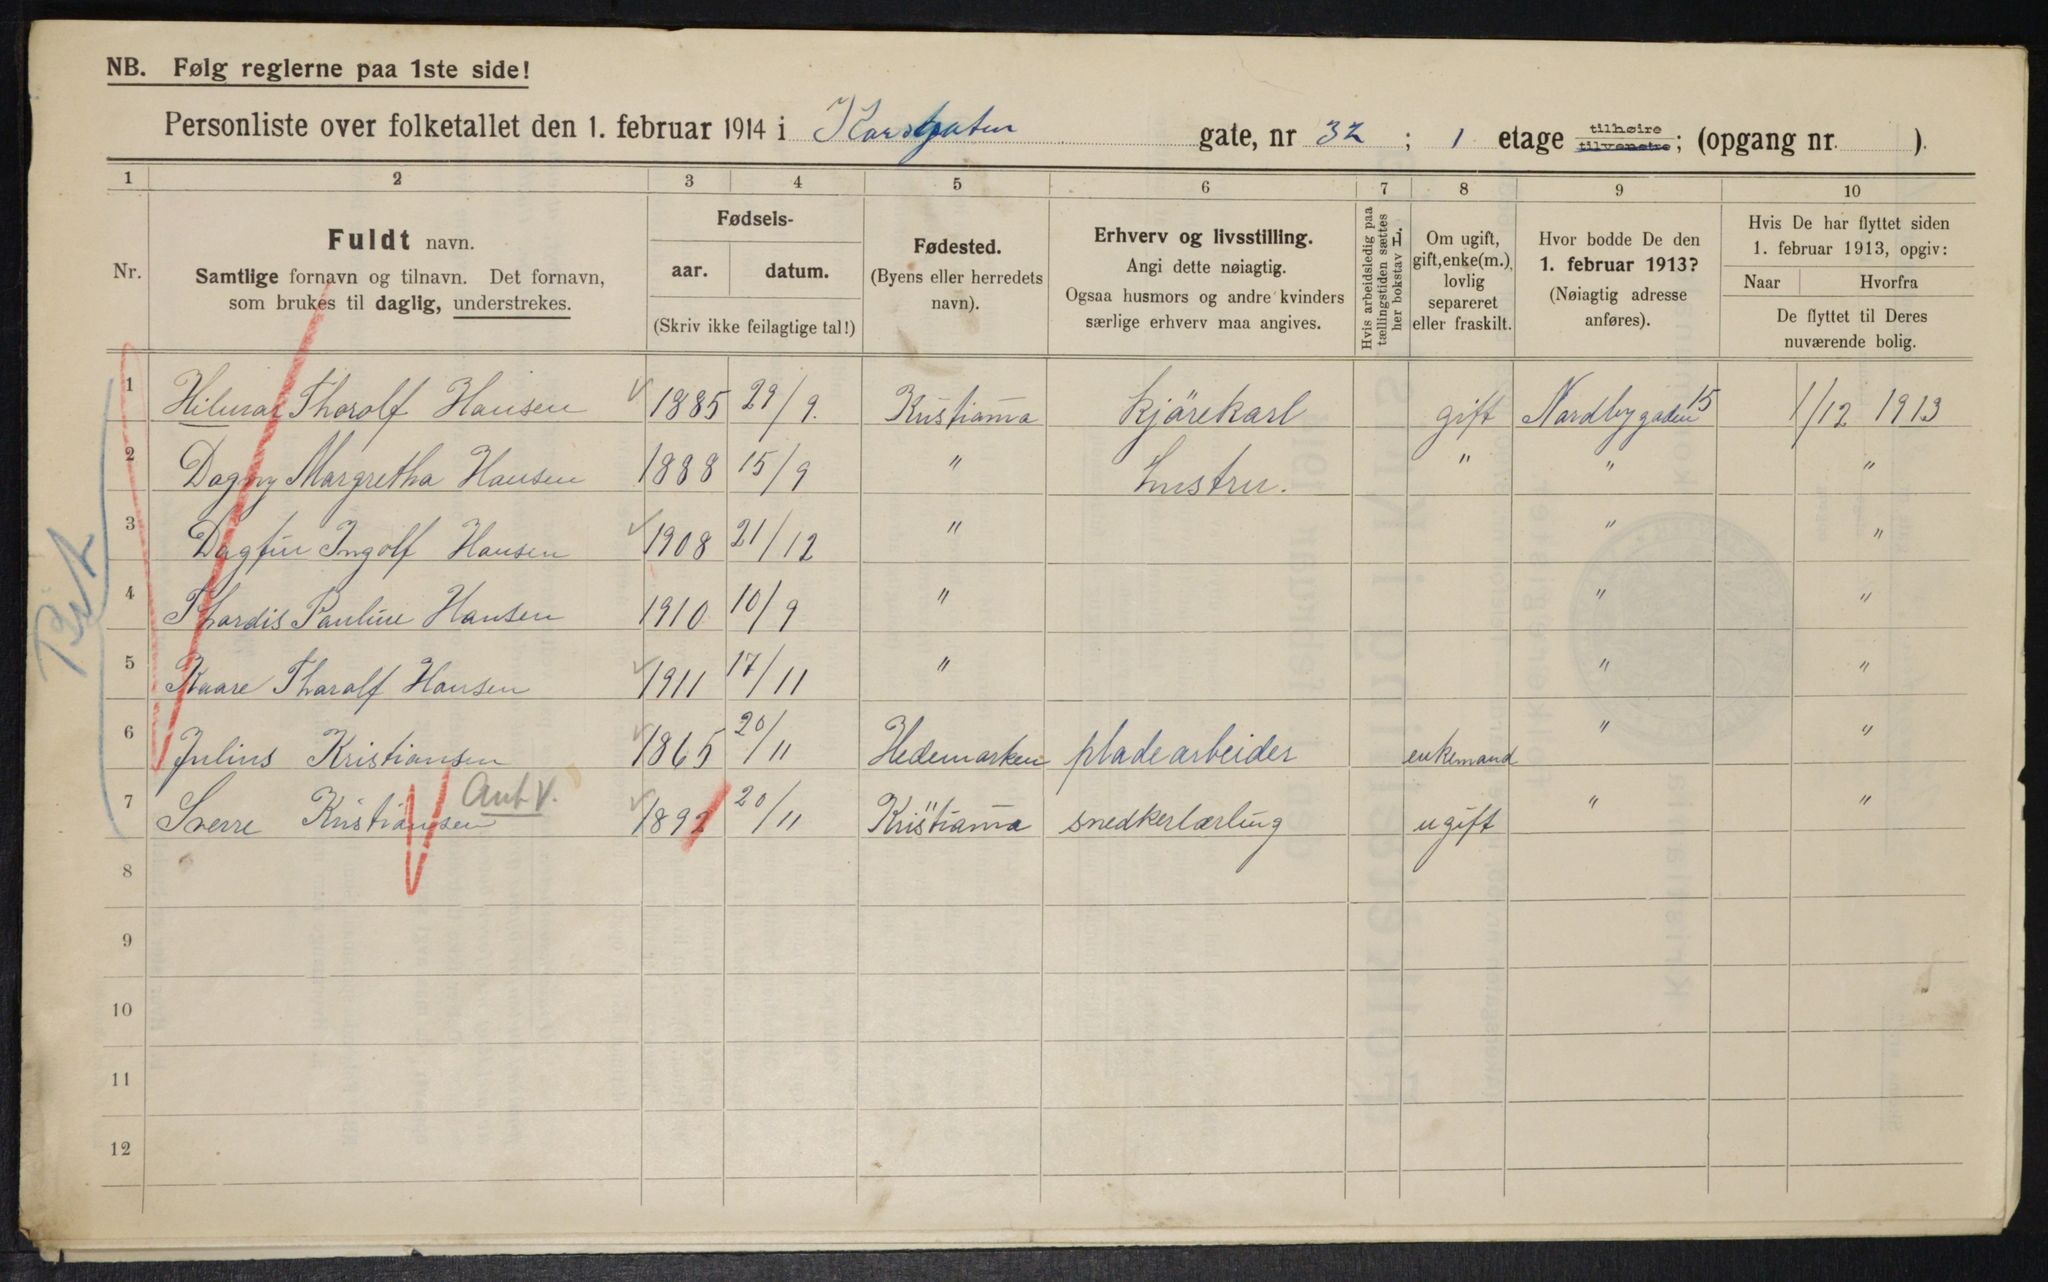 NB. Følg reglerne paa 1ste side!
Personliste over folketallet den 1. februar 1914 i Korsgaten gate, nr 32 ; 1 etage tilhøire tilvenstre; (opgang nr. ).
1 2 3 4 5 6 7 8 9 10
Nr.
Fuldt navn.
Samtlige fornavn og tilnavn. Det fornavn,
som brukes til daglig, understrekes.
Fødsels-
aar. datum.
(Skriv ikke feilagtige tal!)
Fødested.
(Byens eller herredets
navn).
Erhverv og livsstilling.
Angi dette nøiagtig.
Ogsaa husmors og andre kvinders
særlige erhverv maa angives.
Hvis arbeidsledig paa
tællingstiden sættes
her bokstav H.
Om ugift,
gift, enke(m.),
lovlig
separeret
eller fraskilt.
Hvor bodde De den
1. februar 1913?
(Nøiagtig adresse
anføres).
Hvis De har flyttet siden
1. februar 1913, opgiv:
Naar Hvorfra
De flyttet til Deres
nuværende bolig.
1 Hilmar Tharolf Hansen 1885 29/9. Kristiania kjörekarl gift Nordbygaden 15 1/12 1913
2 Dagny Margretha Hansen 1888 15/9 " hustru. " " "
3 Dagfin Ingolf Hansen 1908 21/12 " " "
4 Thordis Pauline Hansen 1910 10/9 " " "
5 Kaare Tharalf Hansen 1911 17/11 " " "
6 Julius Kristiansen 1865 20/11 Hedemarken pladearbeider enkemand " "
Ant. V.
7 Sverre Kristiansen 1892 20/11 Kristiania snedkerlærling ugift " "
8
9
10
11
12